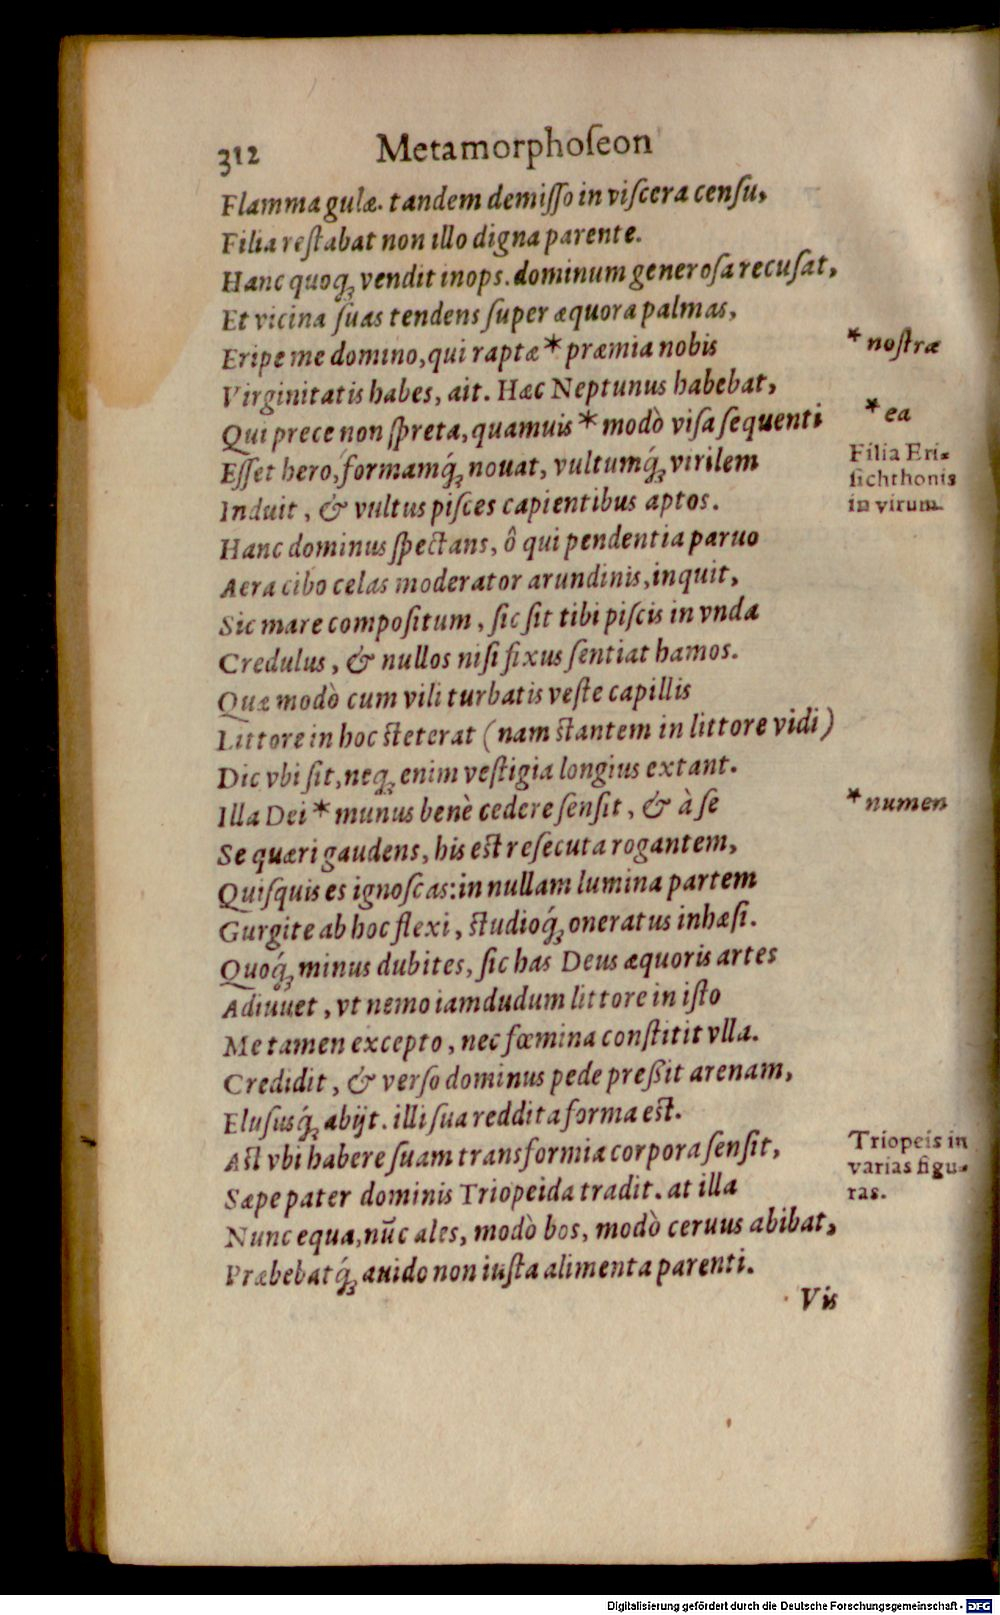 312 Metamorphoſeon
Flamma gulæ. tandem demiſſo in viſcera cenſu,
Filia reſtabat non illo digna parente.
Hanc quoq; vendit inops. dominum generoſa recuſat,
Et vicina ſuas tendens ſuper æquora palmas,
Eripe me domino, qui raptæ * præmia nobis
* noſtræ
Virginitatis habes, ait. Hæc Neptunus habebat,
Qui prece non ſpreta, quamuis * modò viſa ſequenti
* ea
Eſſet hero, formamq́; nouat, vultumq́; virilem
Induit, & vultus piſces capientibus aptos.
Filia Eri-
ſichthonis
in virum.
Hanc dominus ſpectans, ô qui pendentia paruo
Aera cibo celas moderator arundinis, inquit,
Sic mare compoſitum, ſic ſit tibi piſcis in vnda
Credulus, & nullos niſi fixus ſentiat hamos.
Quæ modò cum vili turbatis veſte capillis
Littore in hoc ſteterat (nam ſtantem in littore vidi)
Dic vbi ſit, neq; enim veſtigia longius extant.
Illa Dei * munus benè cedere ſenſit, & à ſe
* numen
Se quæri gaudens, his eſt reſecuta rogantem,
Quiſquis es ignoſcas: in nullam lumina partem
Gurgite ab hoc flexi, ſtudioq́; oneratus inhæſi.
Quoq́; minus dubites, ſic has Deus æquoris artes
Adiuuet, vt nemo iamdudum littore in iſto
Me tamen excepto, nec fœmina conſtitit vlla.
Credidit, & verſo dominus pede preßit arenam,
Eluſusq́; abijt. illi ſua reddita forma eſt.
Aſt vbi habere ſuam transformia corpora ſenſit,
Sæpe pater dominis Triopeida tradit. at illa
Triopeis in
varias figu-
ras.
Nunc equa, nūc ales, modò bos, modò ceruus abibat,
Præbebatq́; auido non iuſta alimenta parenti.
Vis
Digitalisierung gefördert durch die Deutsche Forschungsgemeinschaft - DFG